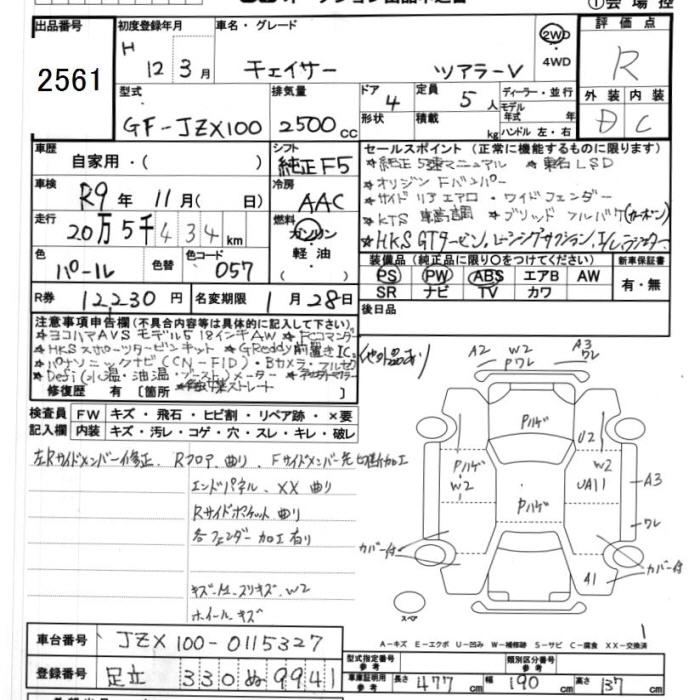 出品番号 初度登録年月 車名・グレード 評価点
2561 H 12年 3月 チェイサー ツアラーV 2WD ・4WD R
型式 排気量 ドア 定員 ディーラー・並行 外装 内装
GF-JZX100 2500cc 4 5人 モデル 年式 年 D C
形状 積載 kg ハンドル 左・右
車歴 自家用・( ) シフト 純正F5
セールスポイント (正常に機能するものに限ります)
★純正5速マニュアル ★東名LSD
★オリジンFバンパー
★サイドリアエアロ・ワイドフェンダー
★KTS車高調 ★ブリッドフルバケ(カーボン)
★HKS GTタービン,レーシングサクション,I/C,ラジエター
車検 R9年 11月( 日) 冷房 AAC
走行 20万5千434km 燃料 ガソリン 軽油 ( )
色 パール 色替 色コード 057
装備品 (純正品に限り○をつけてください) 新車保証書
PS PW ABS エアB AW 有・無
SR ナビ TV カワ
R券 12,230円 名変期限 1月28日 後日品
注意事項申告欄(不具合内容等は具体的に記入して下さい)
★ヨコハマAVSモデル5 18インチAW ★FCコマンダー
★HKSスポーツタービンキット ★GReddy前置きIC (他欠品あり)
★パナソニックナビ(CN-F1D)・Bカメラ・フルセグ
★Defi(水温・油温・ブースト)メーター
修復歴 有 [箇所 ]
検査員 FW キズ・飛石・ヒビ割・リペア跡・×要
記入欄 内装 キズ・汚レ・コゲ・穴・スレ・キレ・破レ
左RサイドメンバーM修正、Rフロア 曲り、Fサイドメンバー先切断加工
エンドパネル、XX 曲り
Rサイドポケット 曲り
各フェンダー加工有り
ホイールキズ
A2 W2 Pワレ A3 ワレ
Pハゲ
U2
Pハゲ W2 W2
UA11 A3
Pハゲ
ワレ
カバー付 カバー付
A1
スペア
1
A-キズ E-エクボ U-凹み W-補修跡 S-サビ C-腐食 XX-交換済
車台番号 JZX100-0115327
登録番号 足立 330 ぬ 9941
型式指定番号 参考 類別区分番号 参考
車庫証明用 参考 長さ 477cm 幅 190cm 高さ 137cm